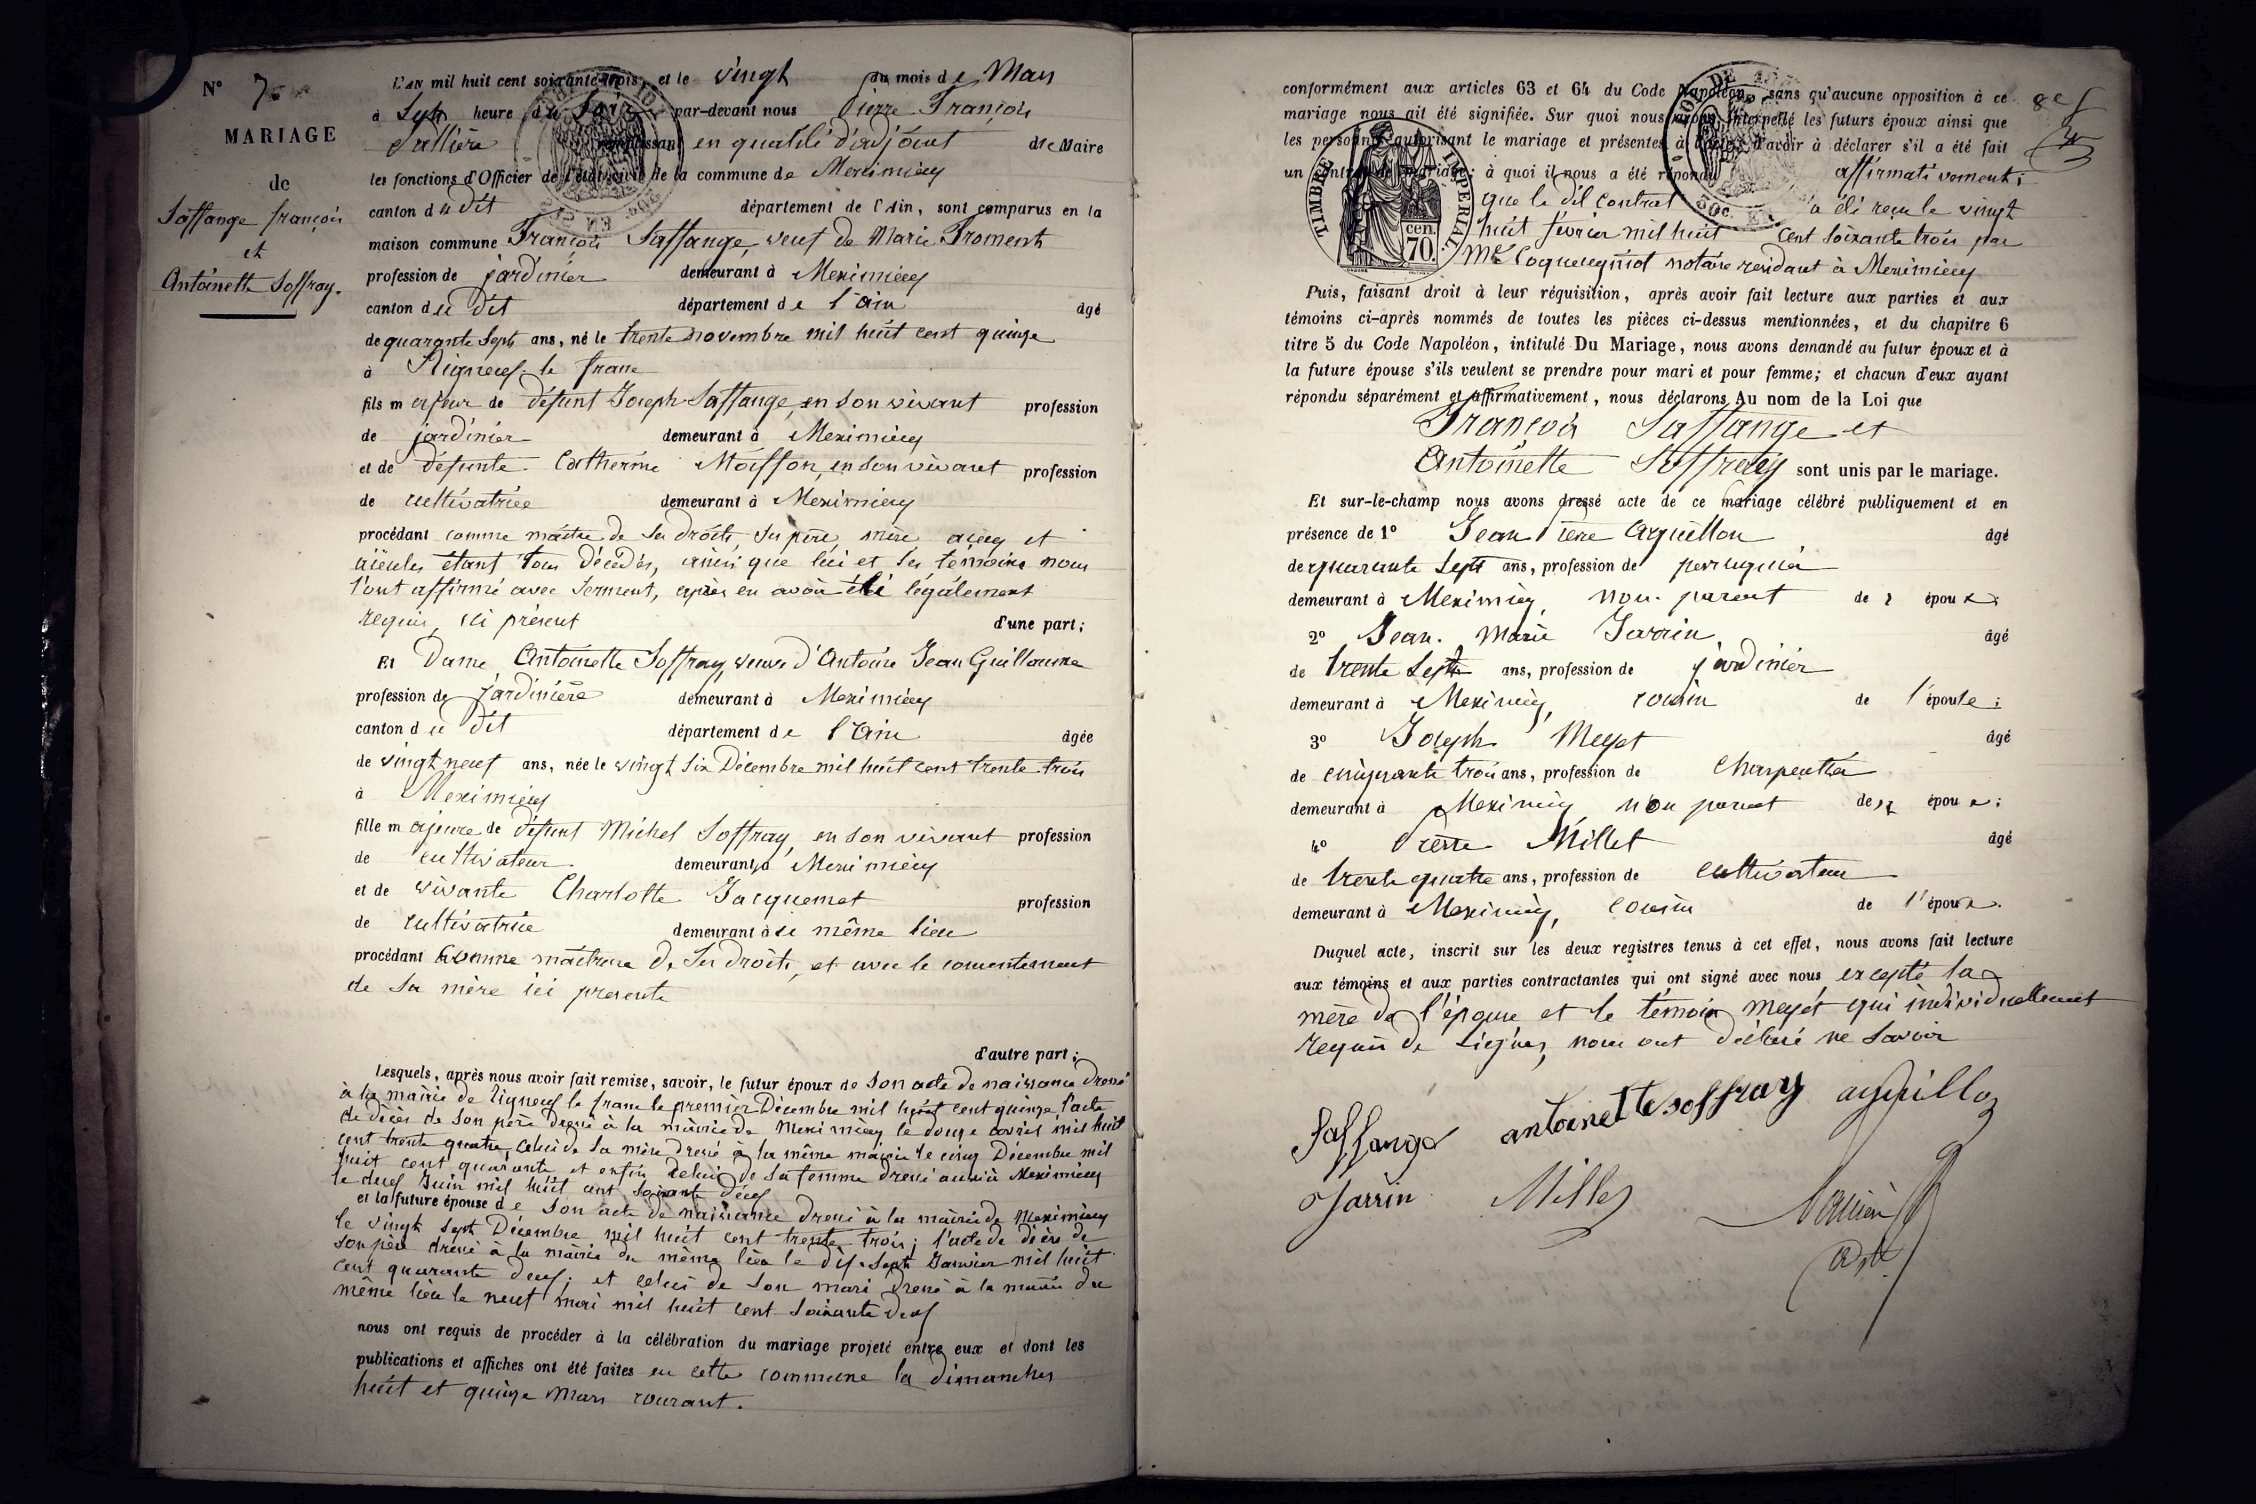 N° 7
MARIAGE
de
Saffange françois
et
Antoinette Soffray.
L'AN mil huit cent soixante-trois, et le vingt du mois de Mars
à Sept heure du Soir par-devant nous Pierre François
Sallière remplissant en qualité d'adjoint de Maire
les fonctions d'Officier de l'état civil de la commune de Meximieux
canton du dit département de l'Ain, sont comparus en la
maison commune François Saffange, veuf de Marie Froment
profession de jardinier demeurant à Meximieux
canton du dit département de l'ain âgé
de quarante Sept ans, né le trente novembre mil huit cent quinze
à Rigneux le franc
fils majeur de défunt Joseph Saffange, en son vivant profession
de jardinier demeurant à Meximieux
et de défunte Catherine Moiffon, en son vivant profession
de cultivatrice demeurant à Meximieux
procédant comme maître de ses droits ses père, mère aieux et
aïeules étant tous décédés, ainsi que lui et ses témoins nous
l'ont affirmé avec serment, après en avoir été légalement
requis, ici présent d'une part;
Et Dame Antoinette Soffray, veuve d'Antoine Jean Guillaume
profession de jardinière demeurant à Meximieux
canton du dit département de l'Ain âgée
de vingt neuf ans, née le vingt six Décembre mil huit cent trente trois
à Meximieux
fille majeure de défunt Michel Soffray, en son vivant profession
de cultivateur demeurant à Meximieux
et de vivante Charlotte Jacquemet profession
de cultivatrice demeurant à ce même lieu
procédant comme maîtresse de ses droits, et avec le consentement
de sa mère ici présente
d'autre part;
Lesquels, après nous avoir fait remise, savoir, le futur époux de son acte de naissance dressé
à la mairie de Rigneux le franc le premier Décembre mil huit cent quinze l'acte
de décès de son père dressé à la mairie de Meximieux le douze avril mil huit
cent trente quatre, celui de sa mère dressé à la même mairie le cinq Décembre mil
huit cent quarante et enfin celui de sa femme dressé aussi à Meximieux
le deux Juin mil huit cent soixante deux
et la future épouse de son acte de naissance dressé à la mairie de Meximieux
le vingt sept Décembre mil huit cent trente trois; l'acte de décès de
son père dressé à la mairie du même lieu le dix-sept Janvier mil huit
cent quarante deux; et celui de son mari dressé à la mairie du
même lieu le neuf mai mil huit cent soixante deux
nous ont requis de procéder à la célébration du mariage projeté entre eux et dont les
publications et affiches ont été faites en cette commune les dimanches
huit et quinze Mars courant.
conformément aux articles 63 et 64 du Code Napoléon, sans qu'aucune opposition à ce
mariage nous ait été signifiée. Sur quoi nous avons interpellé les futurs époux ainsi que
les personnes autorisant le mariage et présentes à l'acte d'avoir à déclarer s'il a été fait
un contrat de mariage; à quoi il nous a été répondu affirmativement;
que le dit contrat a été reçu le vingt
huit février mil huit cent soixante trois par
Me Coquengniot notaire résidant à Meximieux
TIMBRE IMPERIAL
70. cen.
Puis, faisant droit à leur réquisition, après avoir fait lecture aux parties et aux
témoins ci-après nommés de toutes les pièces ci-dessus mentionnées, et du chapitre 6
titre 5 du Code Napoléon, intitulé Du Mariage, nous avons demandé au futur époux et à
la future épouse s'ils veulent se prendre pour mari et pour femme; et chacun d'eux ayant
répondu séparément et affirmativement, nous déclarons Au nom de la Loi que
François Saffange et
Antoinette Soffray sont unis par le mariage.
Et sur-le-champ nous avons dressé acte de ce mariage célébré publiquement et en
présence de 1° Jean Pierre Arguillon âgé
de quarante Sept ans, profession de perruquier
demeurant à Meximieux, non parent des époux;
2° Jean Marie Jarrin, âgé
de trente Sept ans, profession de jardinier
demeurant à Meximieux, cousin de l'épouse;
3° Joseph Meyet âgé
de cinquante trois ans, profession de Charpentier
demeurant à Meximieux non parent des époux;
4° Pierre Millet âgé
de trente quatre ans, profession de cultivateur
demeurant à Meximieux, cousin de l'épouse.
Duquel acte, inscrit sur les deux registres tenus à cet effet, nous avons fait lecture
aux témoins et aux parties contractantes qui ont signé avec nous excepté la
mère de l'épouse et le témoin meyet qui individuellement
requis de signer, nous ont déclaré ne savoir
Saffange antoinette soffray
Jarrin Millet